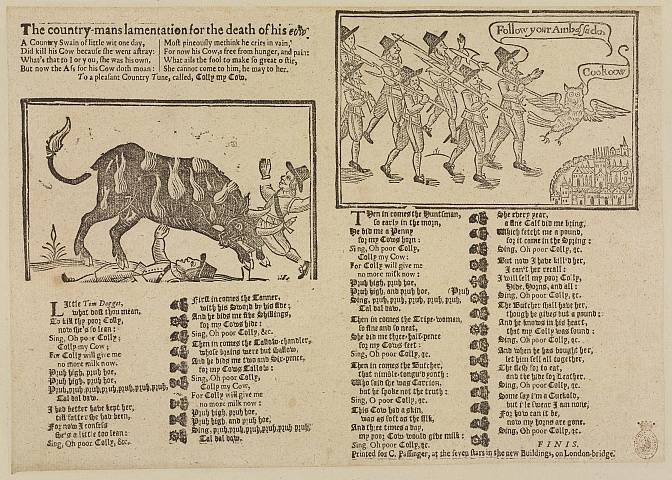 The country-mans lamentation for the death of his cow.
A Country Swain of little wit one day,
Did kill his Cow because she went astray:
What's that to I or you, she was his own,
But now the Ass for his Cow doth moan:
Most pineously methink he cries in vain,
For now his Cow's free from hunger, and pain:
What ails the fool to make so great a stir,
She cannot come to him, he may to her.
To a pleasant Country Tune, called, Colly my Cow.
Follow your Ambassador
Cookoow
Little Tom Dogget,
what dost thou mean,
To kill thy poor Colly,
now she's so lean:
Sing, Oh poor Colly;
Colly my Cow;
For Colly will give me
no more milk now.
Pruh high, pruh hoe,
Pruh high, pruh hoe,
Pruh, pruh, pruh, pruh, pruh, pruh, pruh,
Tal dal daw.
I had better have kept her,
till fatter she had been,
For now I confess
She's a little too lean:
Sing, Oh poor Colly, &c.
First in comes the Tanner,
with his Sword by his side;
And he bids me five Shillings,
for my Cows hide:
Sing, Oh poor Colly, &c.
Then in comes the Tallow-chandler,
whose brains were but shallow,
And he bids me two and Six-pence,
for my Cows Tallow:
Sing, Oh poor Colly,
Colly my Cow,
For Colly will give me
no more milk now:
Pruh high, pruh hoe,
Pruh, high, and pruh hoe,
Sing, pruh, pruh, pruh, pruh, pruh, pruh,
Tal dal daw.
Then in comes the Huntsman,
so early in the morn,
He bid me a Penny
for my Cows horn:
Sing, Oh poor Colly,
Colly my Cow:
For Colly will give me
no more milk now:
Pruh high, pruh hoe,
Pruh high, and pruh hoe,
Sing, pruh, pruh, pruh, pruh, pruh, pruh,
Tal dal daw.
Then in comes the Tripe-woman,
so fine and so neat,
She bid me three-half-pence
for my Cows feet:
Sing, Oh poor Colly, &c.
Then in comes the Butcher,
that nimble-tongu'd youth:
Who said she was Carrion,
but he spoke not the truth:
Sing, O poor Colly, &c.
This Cow had a skin,
was as soft as the silk,
And three times a day,
my poor Cow would give milk:
Sing, Oh poor Colly, &c.
She every year,
a fine Calf did me bring,
Which fetcht me a pound,
for it came in the Spring:
Sing, Oh poor Colly, &c.
But now I have kill'd her,
I can't her recall:
I will sell my poor Colly,
Hide, Horns, and all:
Sing, Oh poor Colly, &c.
The Butcher shall have her,
though he gives but a pound:
And he knows in his heart,
that my Colly was sound:
Sing, Oh poor Colly, &c.
And when he has bought her,
let him sell all together,
The flesh for to eat,
and the hide for Leather.
Sing, Oh poor Colly, &c.
Some say I'm a Cuckold,
but i'le swear I am none,
For how can it be,
now my horns are gone.
Sing, Oh poor Colly, &c.
FINIS.
Printed for C. Passinger, at the seven stars in the new Buildings, on London-bridge.